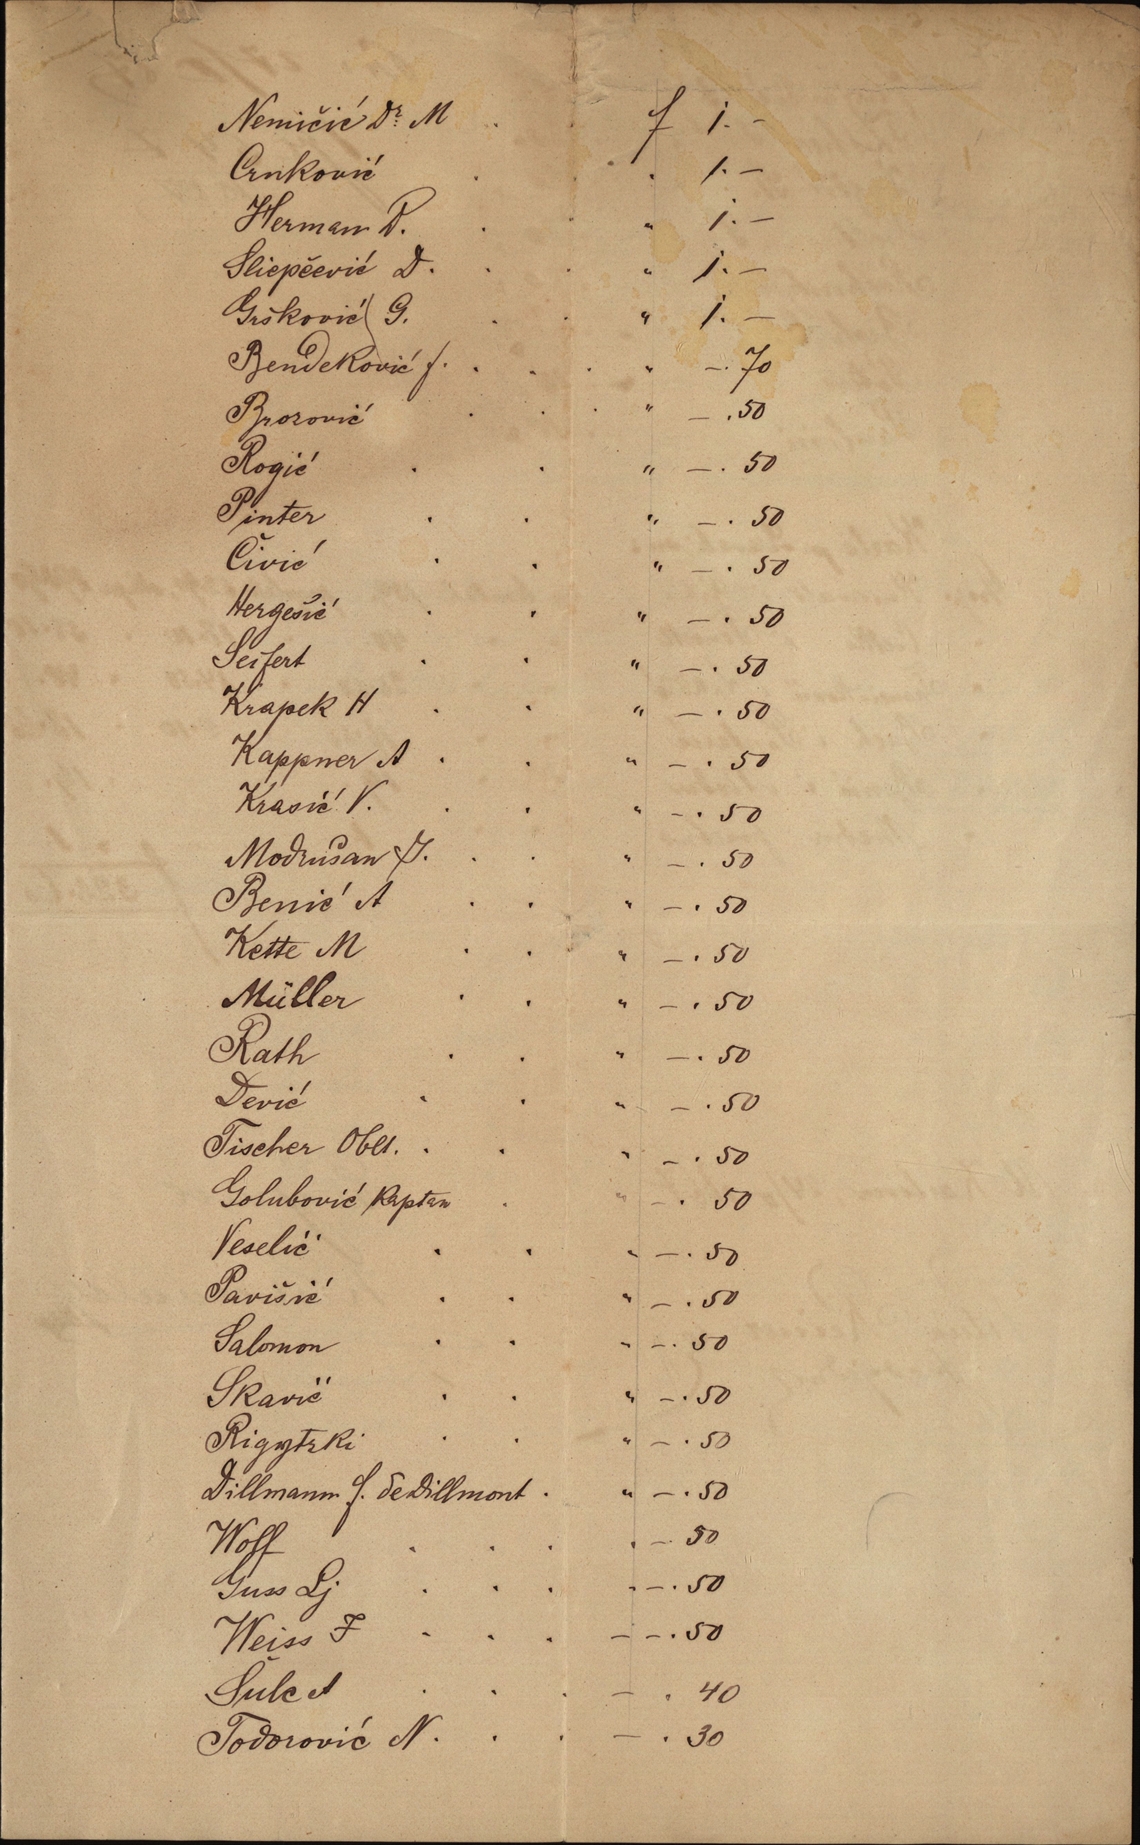 Nemičić Dr. M . f 1. –
Crnković . . 1. –
Herman D. . . " 1. –
Sliepčević D. . . " 1. –
Gršković G. . . " 1. –
Bendeković f. . . . " – . 70
Brozović . . . " – . 50
Rogić . . " – . 50
Pinter . . " – . 50
Čivić . . " – . 50
Hergešić . . " – . 50
Seifert . . " – . 50
Krapek H . . " – . 50
Kappner A . . " – . 50
Krasić V. . . " – . 50
Modrušan J. . . " – . 50
Benić A . . " – . 50
Kette M . . " – . 50
Müller . . " – . 50
Rath . . " – . 50
Dević . . " – . 50
Tischer Oblt. . . " – . 50
Golubović kaptan . " – . 50
Veselić . . " – . 50
Pavišić . . " – . 50
Salomon . . " – . 50
Skavić . . " – . 50
Rigytzki . . " – . 50
Dillmann f. de Dillmont . " – . 50
Wolf . . . . – 50
Guss Lj . . . " – . 50
Weiss F . . . – – . 50
Šulc A . . . – . 40
Todorović N. . . – . 30